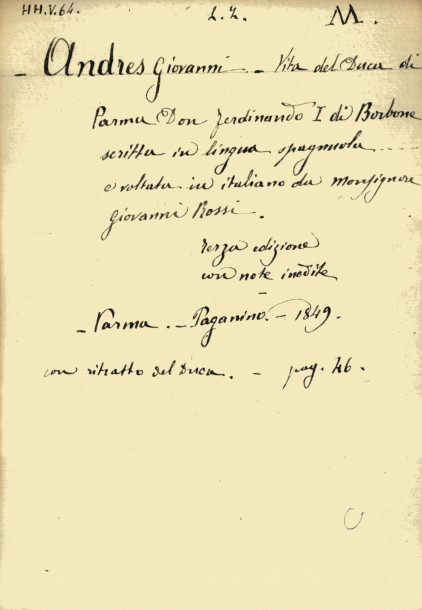 HH.V.64. L.Z. M.
Andres Giovanni - Vita del Duca di
Parma Don Ferdinando I di Borbone
scritta in lingua spagnuola
e voltata in italiano da monsignore
Giovanni Rossi.
Terza edizione
con note inedite
- Parma. - Paganino. - 1849.
con ritratto del Duca. - pag. 46.